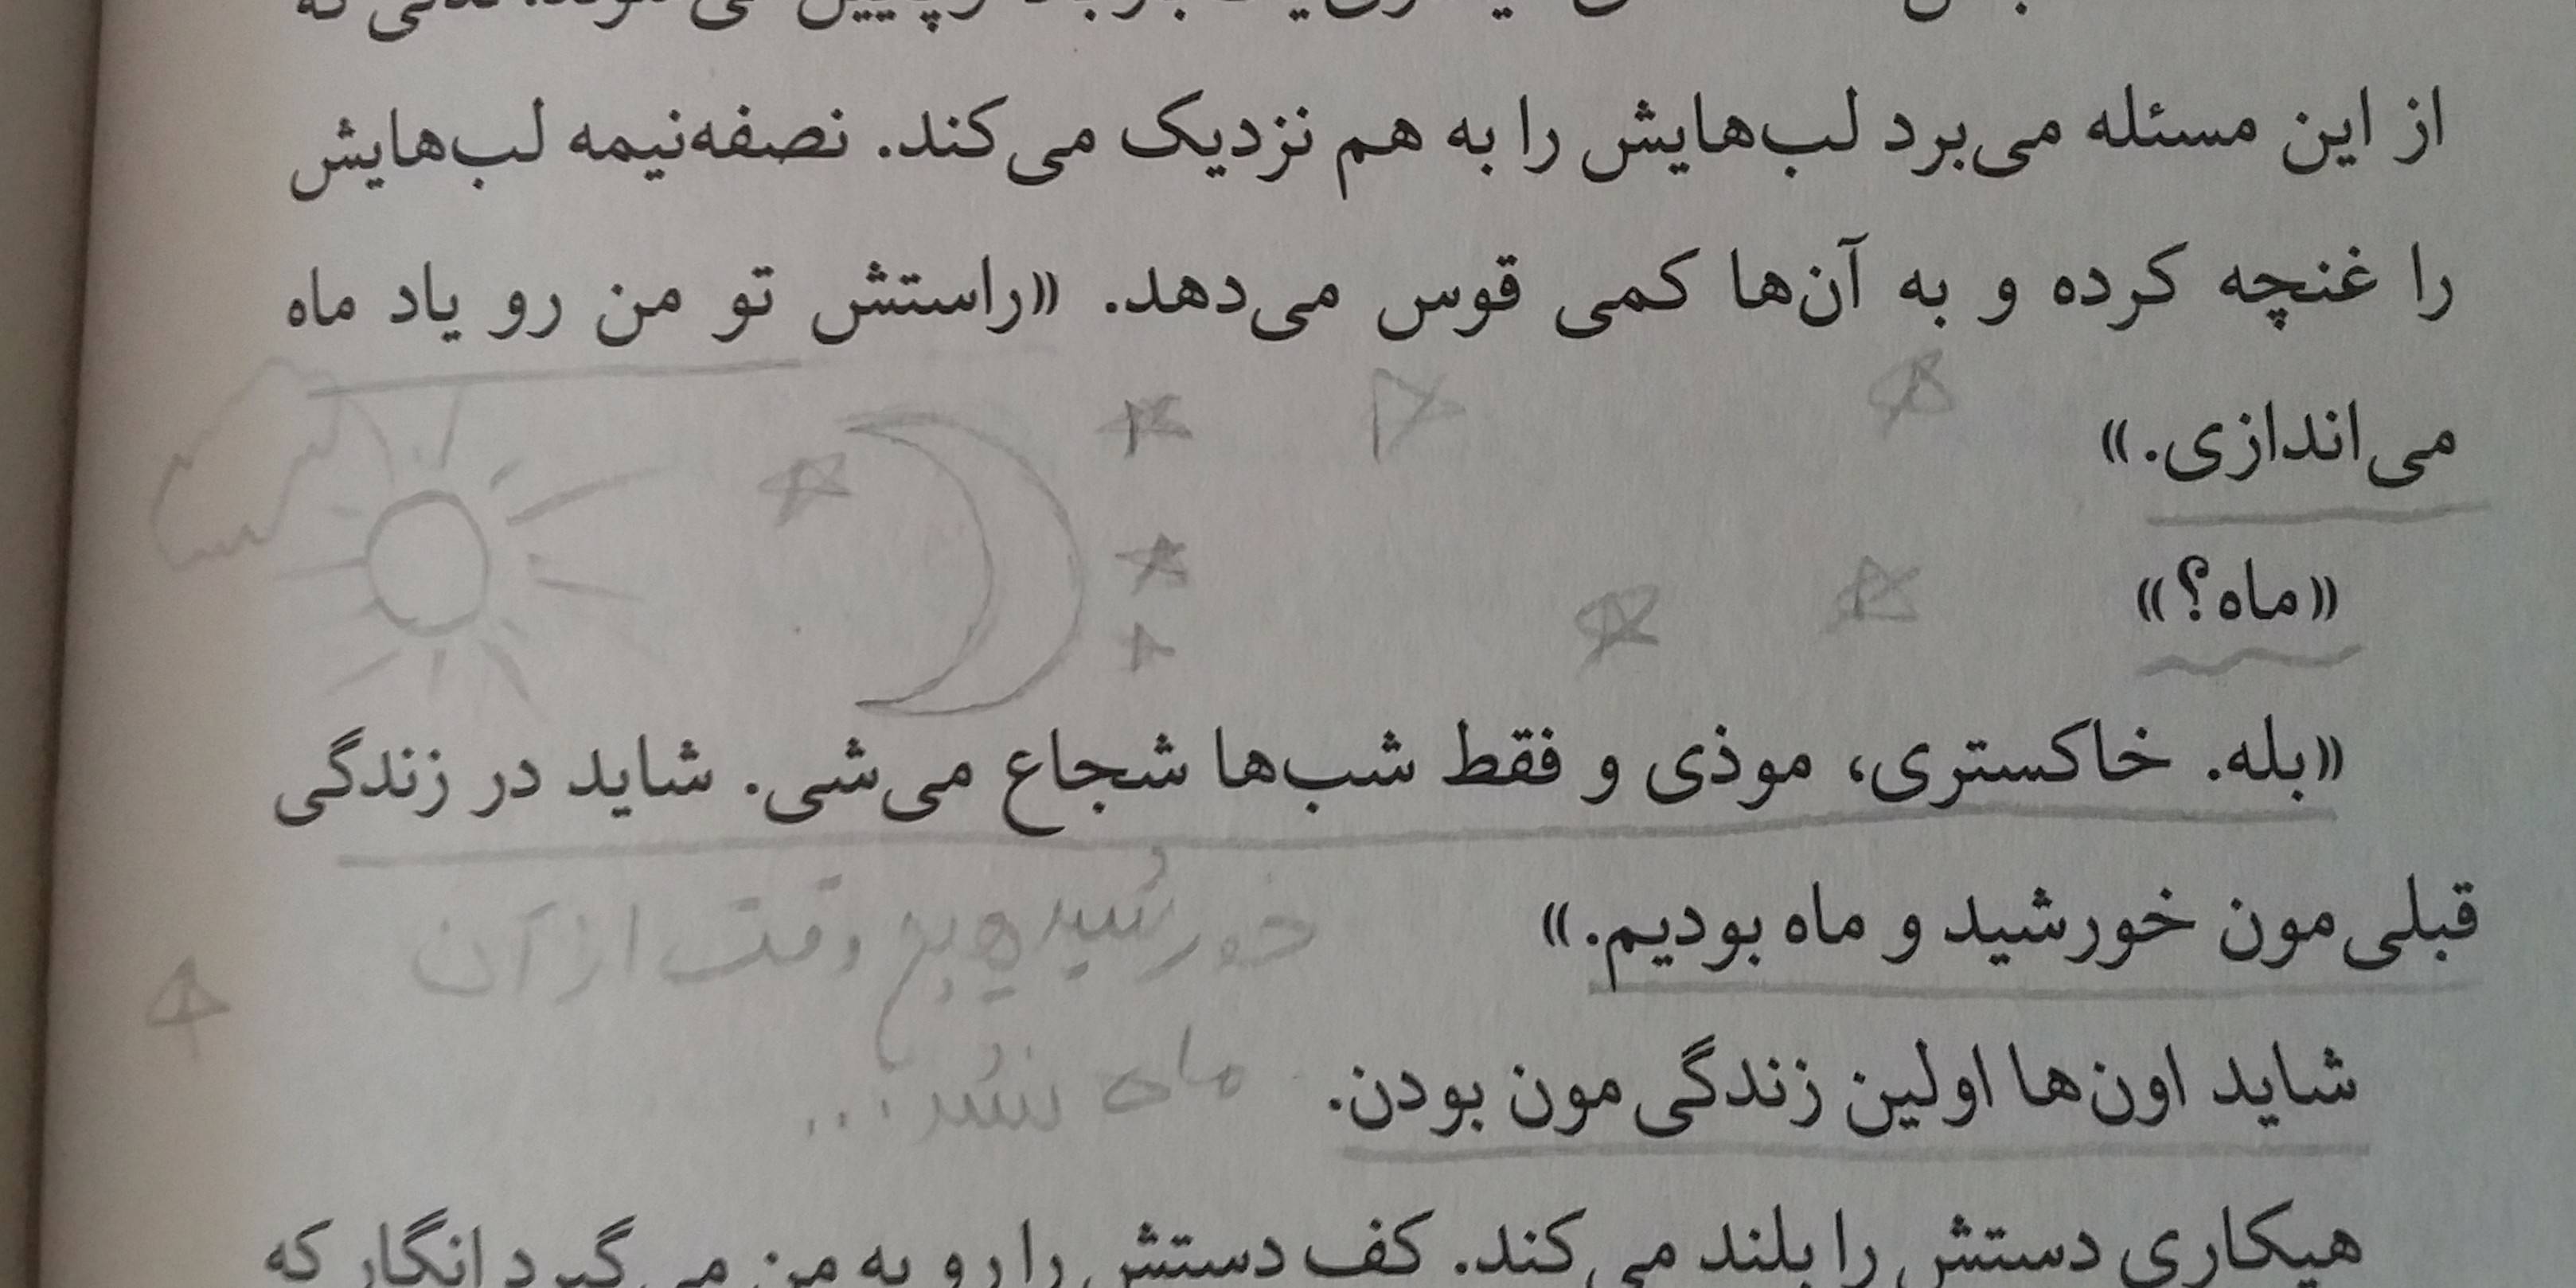 از این مسئله می‌برد لب‌هایش را به هم نزدیک می‌کند. نصفه‌نیمه لب‌هایش
را غنچه کرده و به آن‌ها کمی قوس می‌دهد. «راستش تو من رو یاد ماه
می‌اندازی.»
«ماه؟»
«بله. خاکستری، موذی و فقط شب‌ها شجاع می‌شی. شاید در زندگی
قبلی‌مون خورشید و ماه بودیم.»
خورشید هیچ وقت از آن
شاید اون‌ها اولین زندگی‌مون بودن.
ماه نشد...
هیکاری دستش را بلند می‌کند. کف دستش را رو به من می‌گیرد انگار که